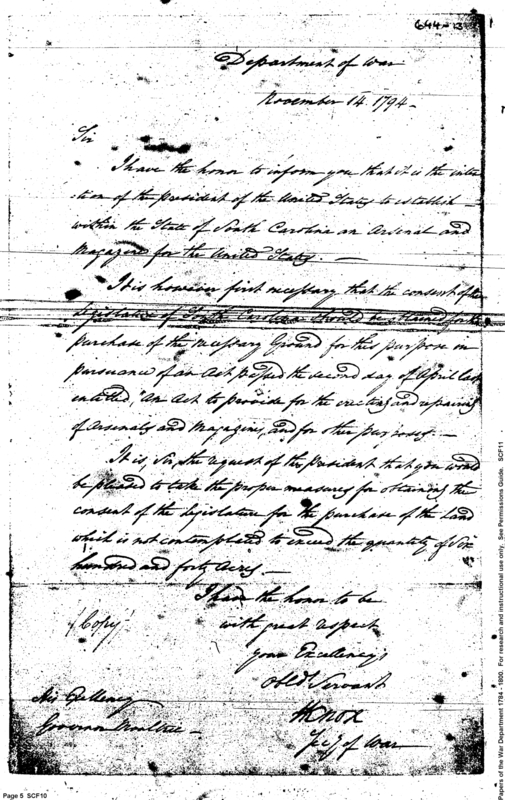 644-13
Department of War
November 14. 1794-
Sir
I have the honor to inform you that it is the inten
tion of the president of the United States to establish -
within the State of South Carolina an Arsenal and
Magazine for the United States. —
It is however first necessary that the consent of the
Legislature of South Carolina should be obtained for the
purchase of the necessary Ground for this purpose in
pursuance of an Act passed the second day of April last
entitled, "An Act to provide for the erecting and repairing
of Arsenals and Magazines, and for other purposes. —
It is, Sir, the request of the President that you would
be pleased to take the proper measures for obtaining the
consent of the legislature for the purchase of the Land
which is not contemplated to exceed the quantity of Six
hundred and forty Acres. —
I have the honor to be
(Copy)
with great respect
your Excellency's
Obed. Servant
HKnox
Secy of War
His Excellency
Governor Moultrie -
Page 5 SCF10
Papers of the War Department 1784 - 1800. For research and instructional use only. See Permissions Guide. SCF11